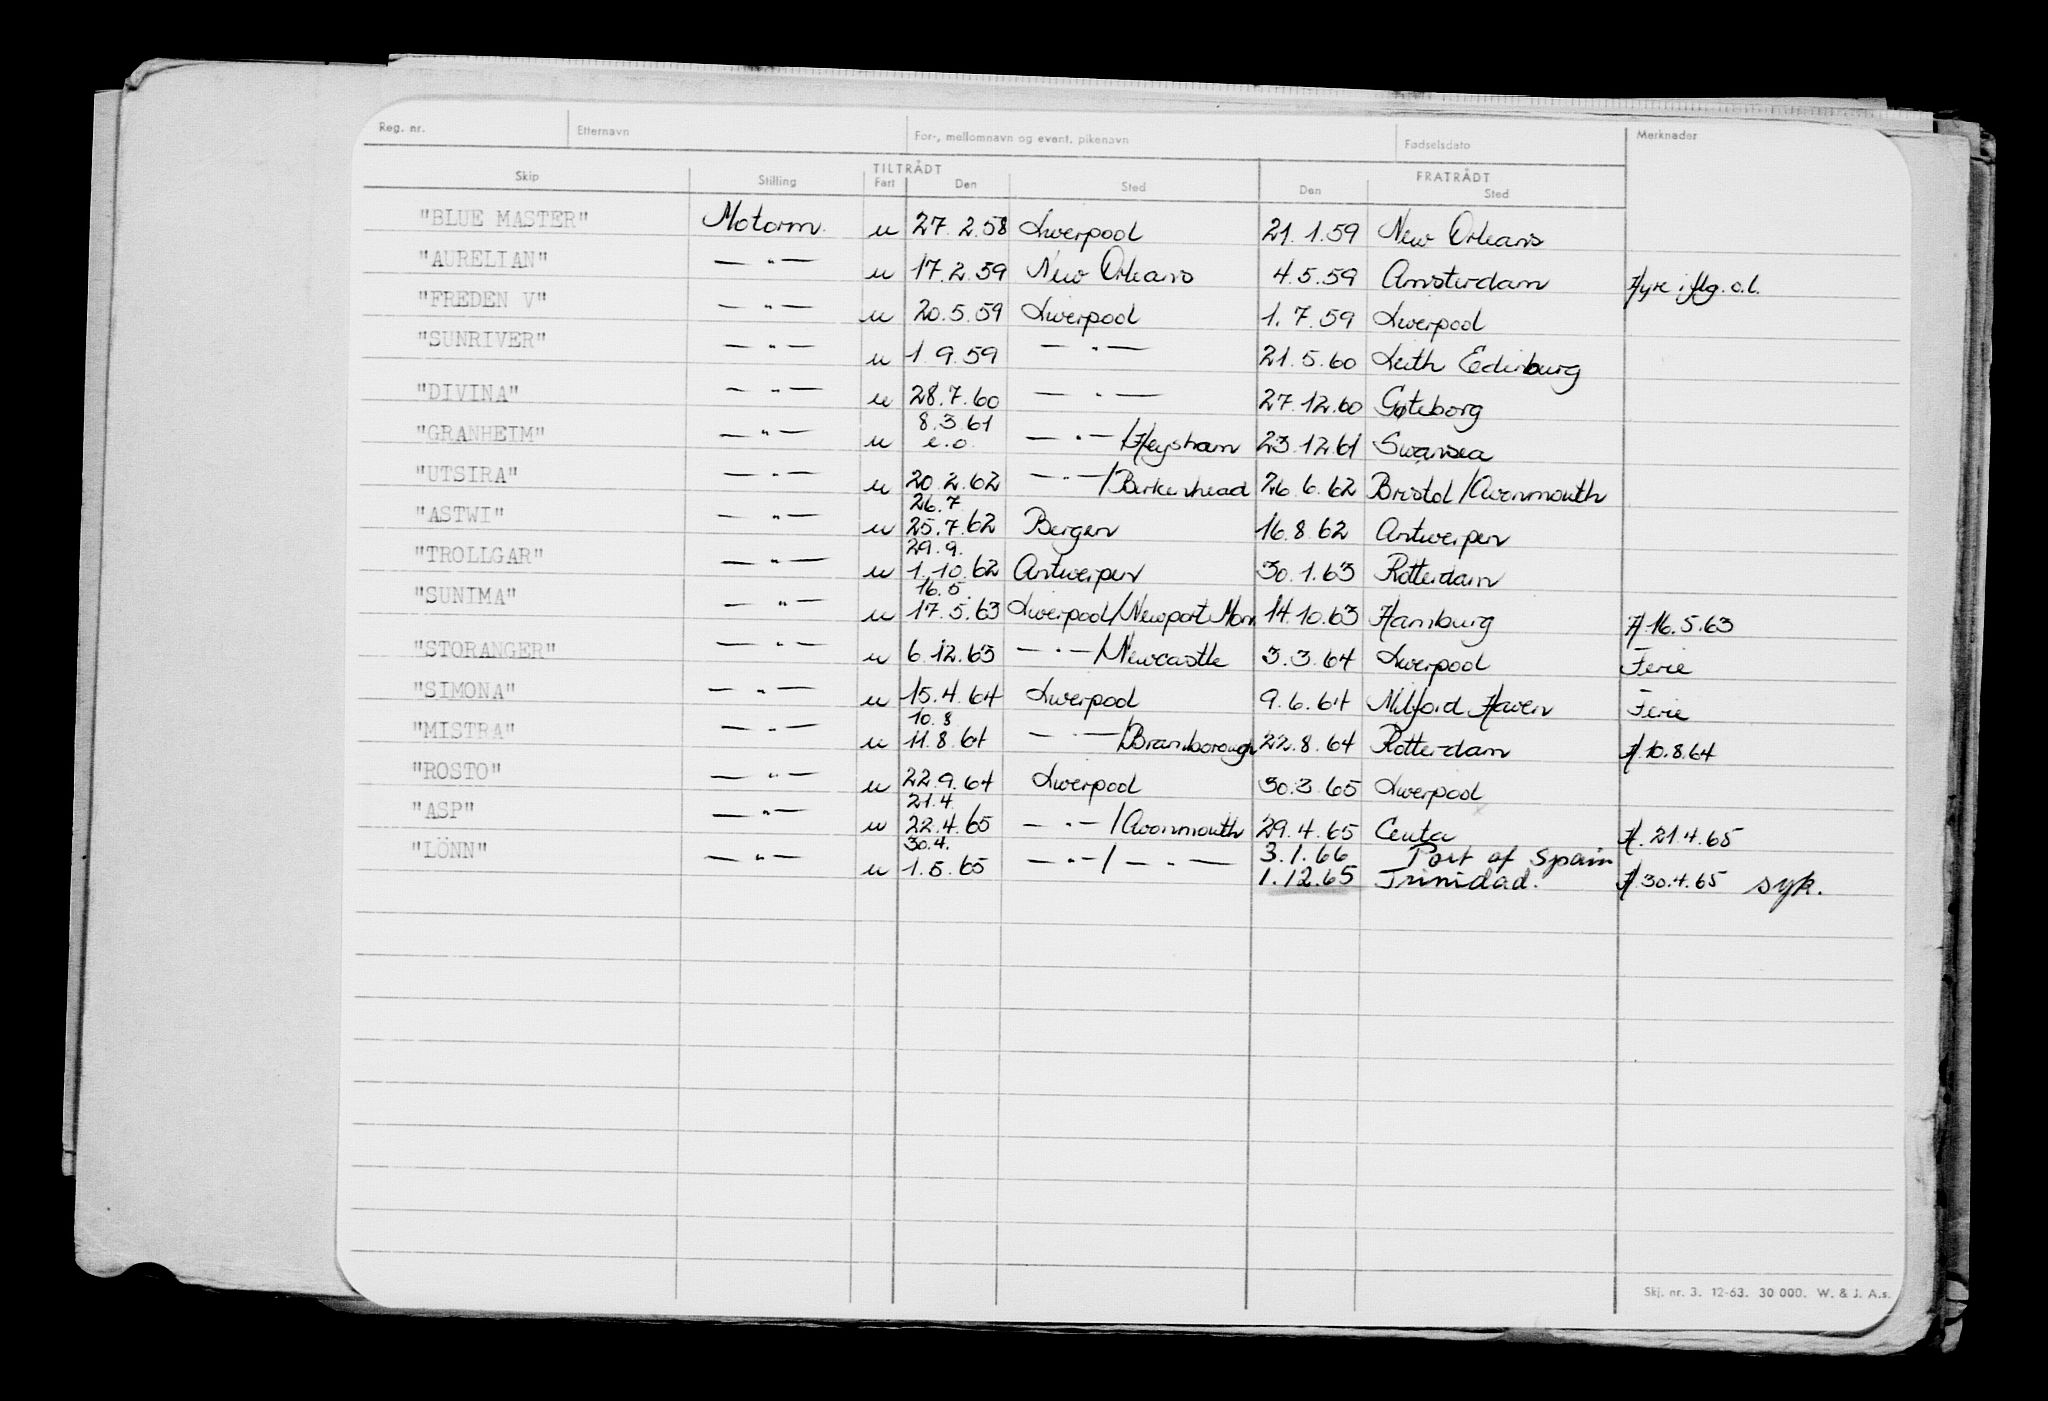 Reg. nr. Etternavn For-, mellomnavn og event. pikenavn Fødselsdato Merknader
TILTRÅDT FRATRÅDT
Skip Stilling Fart Den Sted Den Sted
"BLUE MASTER" Motorm. u 27.2.58 Liverpool 21.1.59 New Orleans
"AURELIAN" — " — u 17.2.59 New Orleans 4.5.59 Amsterdam Hyre iflg. o.l.
"FREDEN V" — " — u 20.5.59 Liverpool 1.7.59 Liverpool
"SUNRIVER" — " — u 1.9.59 — " — 21.5.60 Leith Edinburg
"DIVINA" — " — u 28.7.60 — " — 27.12.60 Gøteborg
8.3.61
"GRANHEIM" — " — u e.o. — " — /Heysham 23.12.61 Swansea
"UTSIRA" — " — u 20.2.62 — " — /Birkenhead 26.6.62 Bristol/Avonmouth
26.7
"ASTWI" — " — u 25.7.62 Bergen 16.8.62 Antwerpen
29.9.
"TROLLGAR" — " — u 1.10.62 Antwerpen 30.1.63 Rotterdam
16.5.
"SUNIMA" — " — u 17.5.63 Liverpool/Newport Mon. 14.10.63 Hamburg H. 16.5.63
"STORANGER" — " — u 6.12.63 — " — /Newcastle 3.3.64 Liverpool Ferie
"SIMONA" — " — u 15.4.64 Liverpool 9.6.64 Milford Haven Ferie
10.8
"MISTRA" — " — u 11.8.64 — " — /Bramborough 22.8.64 Rotterdam H. 10.8.64
"ROSTO" — " — u 22.9.64 Liverpool 30.3.65 Liverpool
21.4.
"ASP" — " — u 22.4.65 — " — /Avonmouth 29.4.65 Ceuta H. 21.4.65
30.4. 3.1.66 Port of Spain
"LÖNN" — " — u 1.5.65 — " — / — " — 1.12.65 Trinidad. H. 30.4.65 syk.
Skj. nr. 3. 12-63. 30 000. W. & J. A.s.